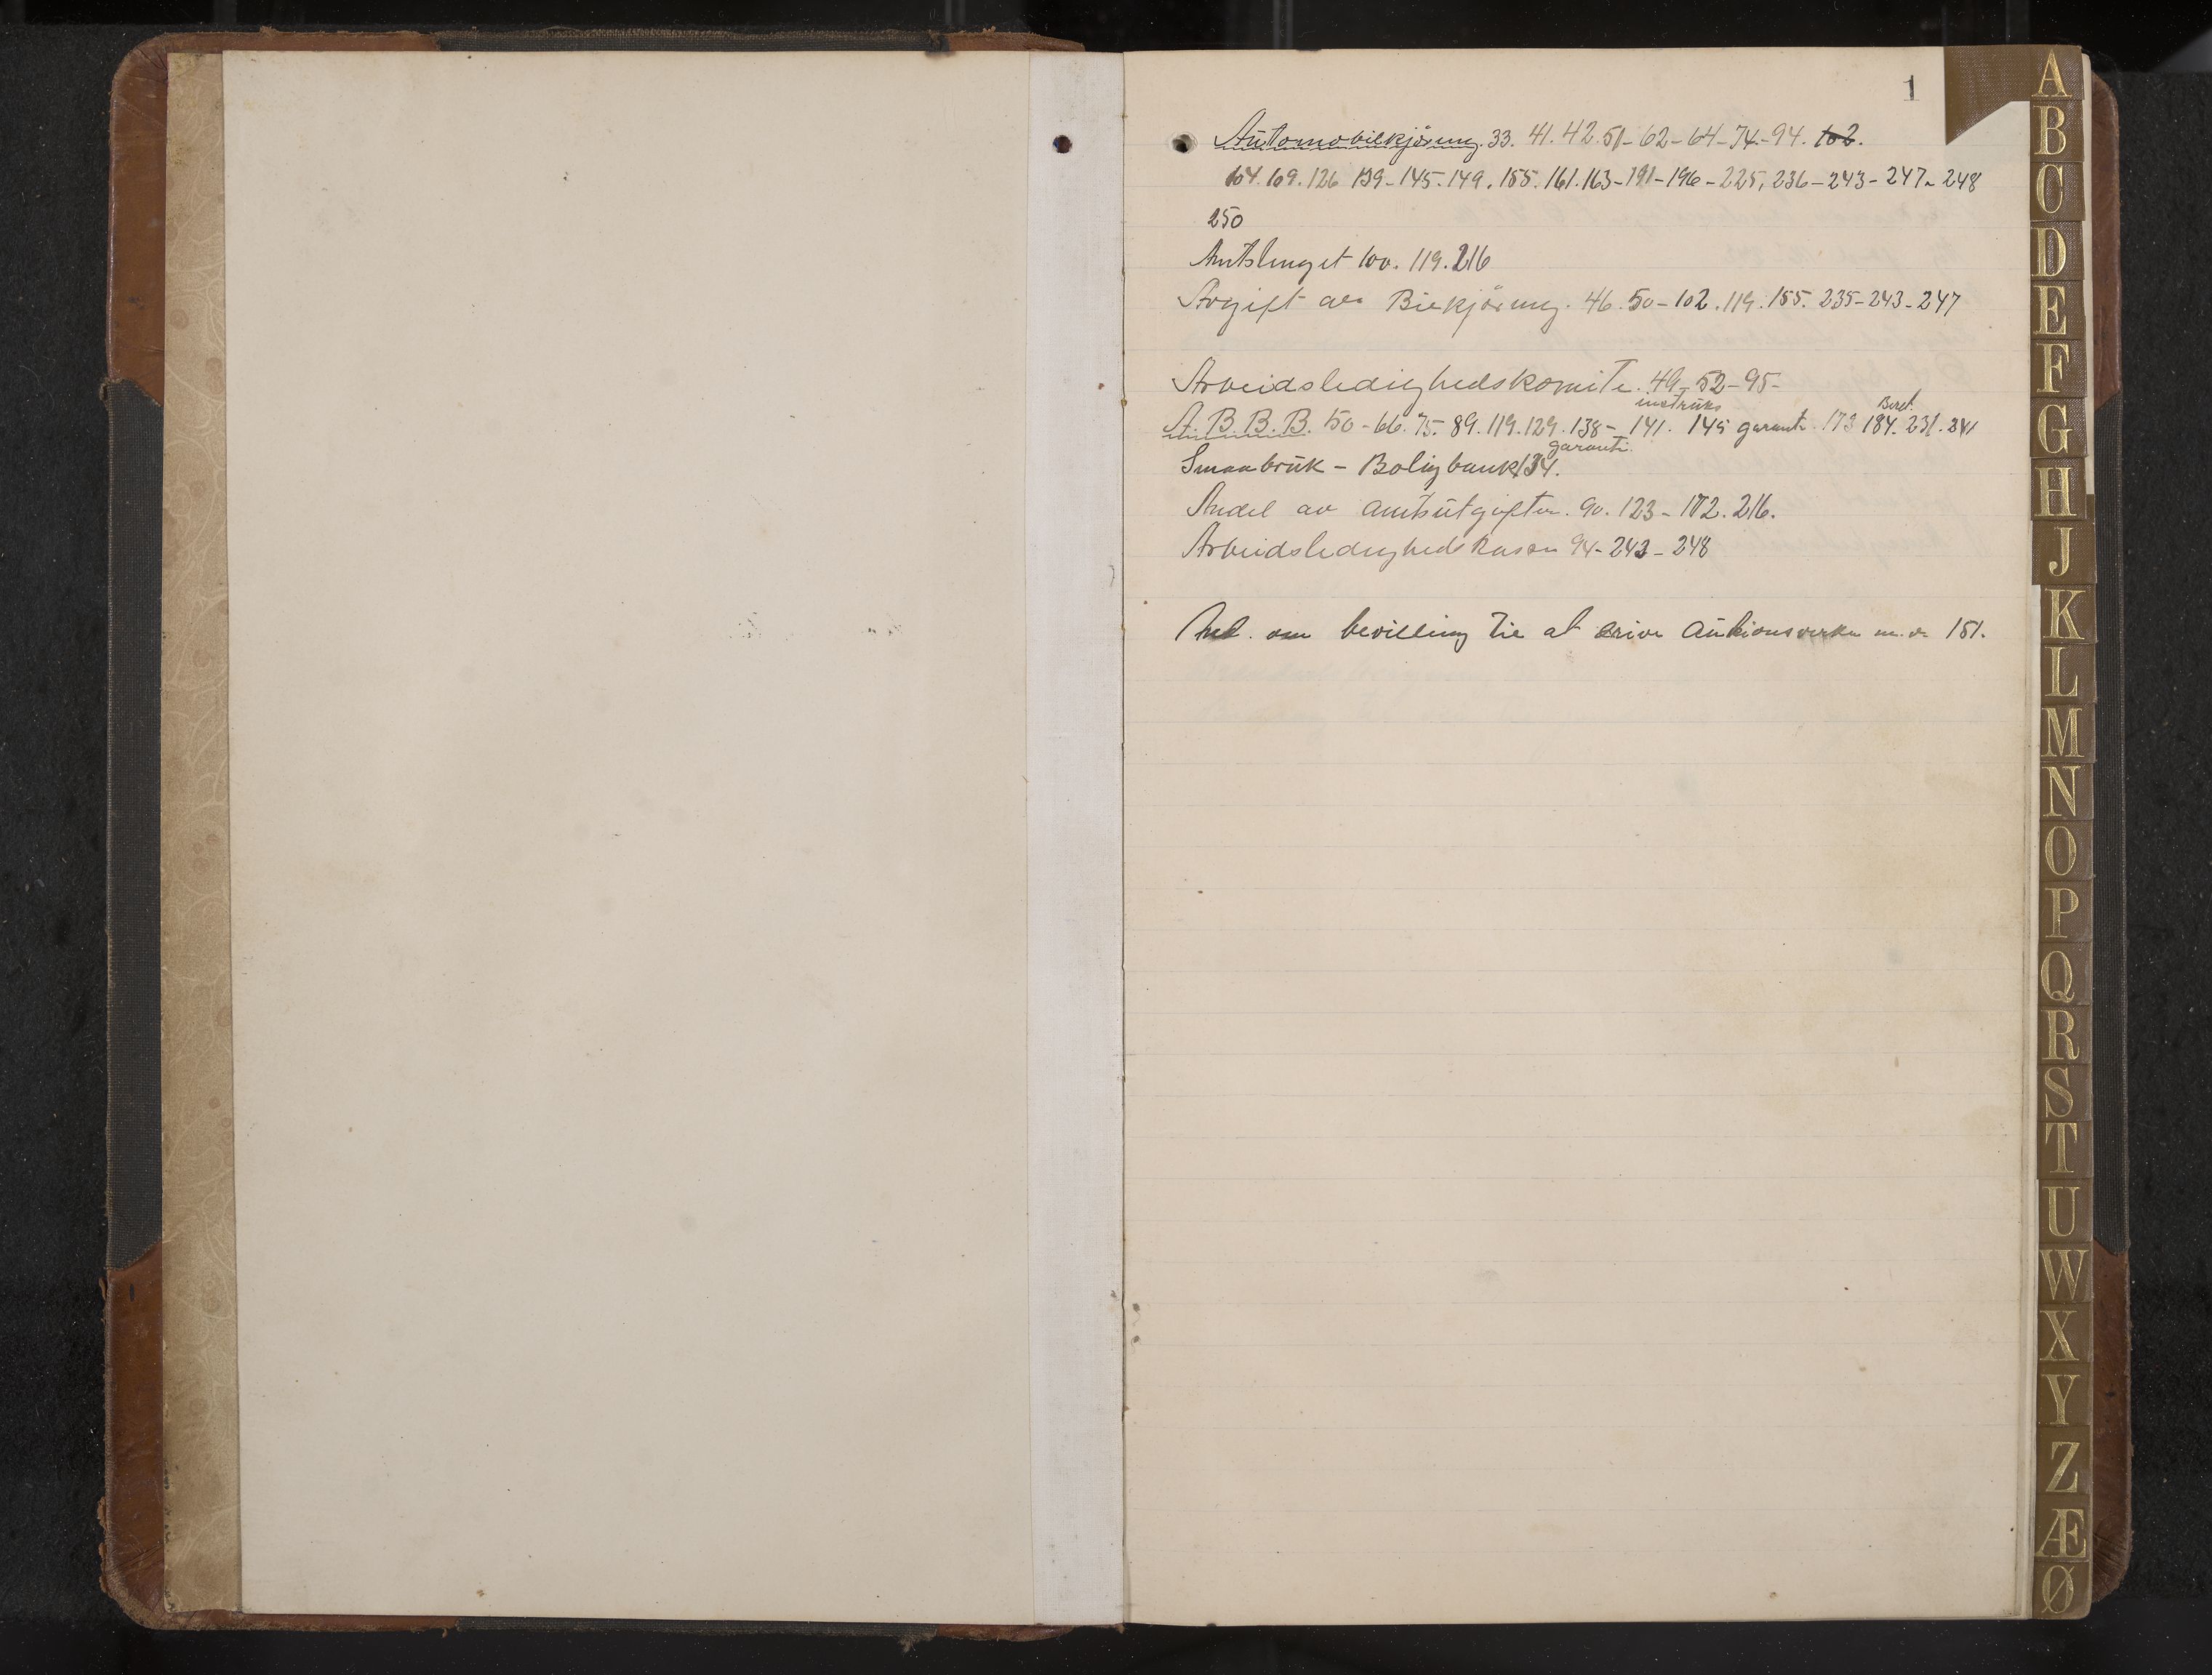 1
Automobilkjöring. 33. 41. 42. 51-62-64-74-94. 102.
104. 109. 126 139-145. 149. 155. 161. 163-191-196-225, 236-243-247-248
250
Amtstinget 100. 119. 216
Avgift av Bilkjöring. 46. 50-102. 119. 155. 235-243-247
Arbeidsledighedskomite. 49-52-95-
instruks Beret.
A. B. B. B. 50-66. 75-89. 119. 129. 138-141. 145 garanti 173 184. 231. 241
garanti.
Smaabruk - Boligbank 134.
Andel av amtsutgifter. 90. 123-172. 216.
Arbeidsledighedskassen 94-243-248
And. om bevilling til at drive Auktionsverker m. v. 151.
A
B
C
D
E
F
G
H
J
K
L
M
N
O
P
Q
R
S
T
U
W
X
Y
Z
Æ
Ø